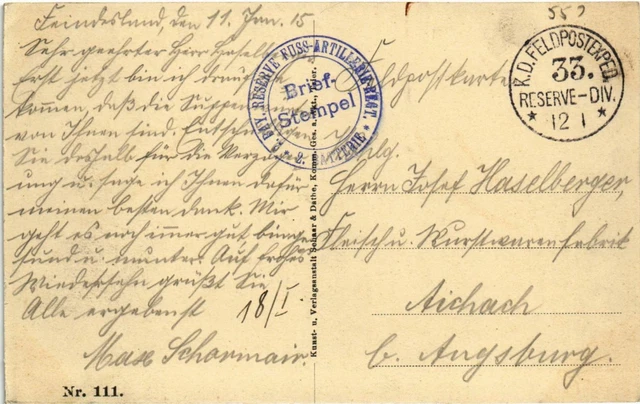 Feindesland, den 11. Jan. 15
Sehr geehrter Herr Haselb
Erst jetzt bin ich drauf ge
kommen, daß die
von Ihnen sind. Entschuldigen
Sie deshalb für die Verzöger
ung u. sage ich Ihnen dafür
meinen besten Dank. Mir
geht es noch immer gut bin ge
sund u. munter. Auf frohes
Wiedersehn grüßt Sie
Alle ergebenst
Max Schormair.
18/I.
Nr. 111.
Kunst- u. Verlagsanstalt Schaar & Dathe, Komm.-Ges. a. Akt., Trier.
BAY. RESERVE FUSS-ARTILLERIE-REGT.
Brief-
Stempel
* 2. BATTERIE *
Feldpostkarte
K.D. FELDPOSTEXPED.
33.
RESERVE-DIV.
* 12 1 *
Herrn Josef Haselberger,
Fleisch u. Wurstwarenfabrik
Aichach
b. Augsburg.